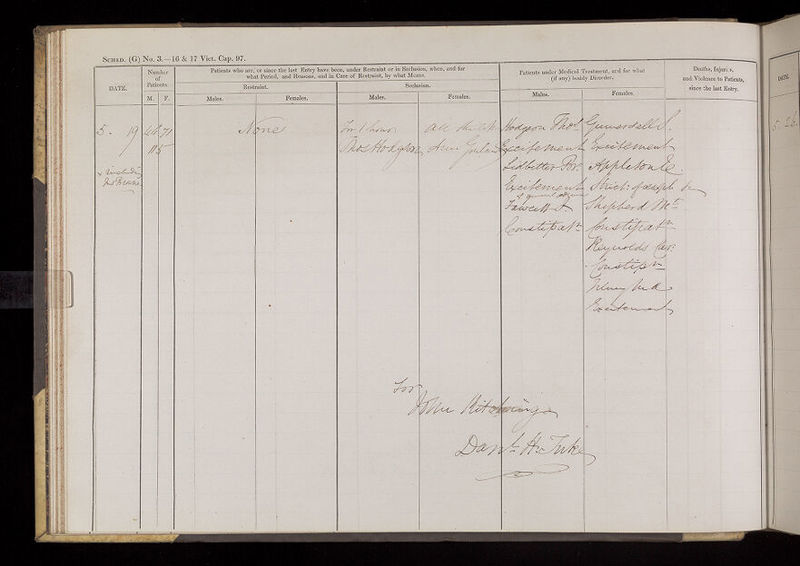 SCHED. (G) No. 3.—16 & 17 Vict. Cap. 97.
DATE.
Number of Patients.
M. F.
Patients who are, or since the last Entry have been, under Restraint or in Seclusion, when, and for
what Period, and Reasons, and in Case of Restraint, by what Means.
Restraint.
Males. Females.
Seclusion.
Males. Females.
Patients under Medical Treatment, and for what
(if any) bodily Disorder.
Males. Females.
Deaths, Injuries,
and Violence to Patients,
since the last Entry.
DATE.
5. 19
71
115
None
For 1 hour
Thos Hodgson
all the
Hodgson Thos
Excitement
Ledbitter
Excitement
Fawcett
Constipatn
Excitement
Appleton
Shepherd Mt
Constipatn
Reynolds
Constipn
Excitement
For
John Kitching
Danl. H. Tuke